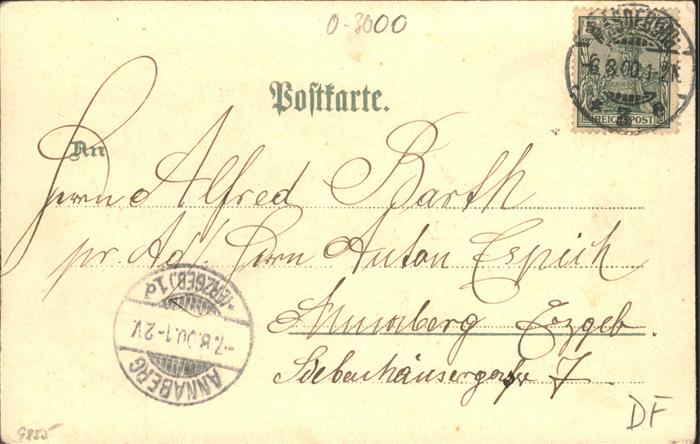 0-3000
MAGDEBURG
6.8.00.1-2N.
REICHSPOST
Postkarte.
An
Herrn Alfred Barth
pr. Ad. Herrn Anton Espich
Annaberg Erzgeb.
Siebenhäusergasse 7
ANNABERG
-7.8.00.1-2V.
(ERZGEB.) 1d
9855
DF